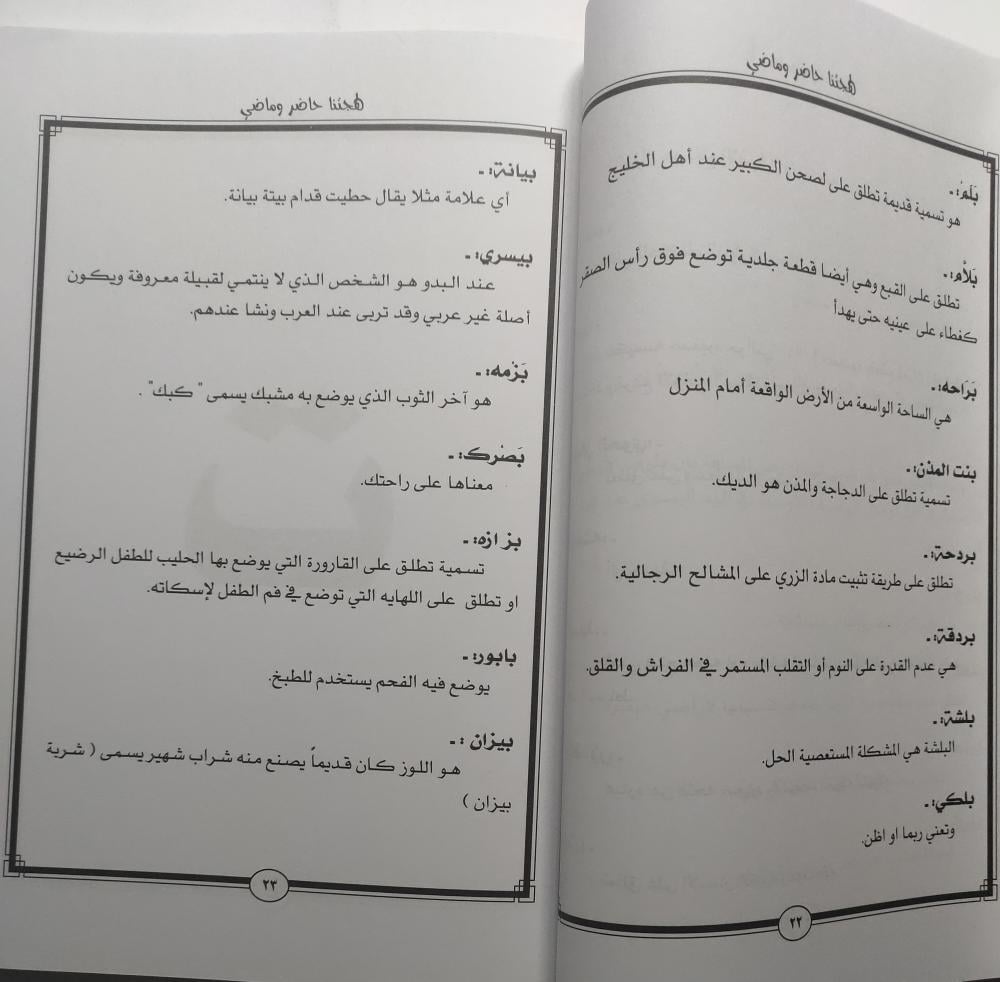 لهجتنا حاضر وماضي
بَلَمْ: -
هو تسمية قديمة تطلق على لصحن الكبير عند أهل الخليج
بَلاْم: -
تطلق على القبع وهي أيضا قطعة جلدية توضع فوق رأس الصقر
كغطاء على عينيه حتى يهدأ
بَرَاحه: -
هي الساحة الواسعة من الأرض الواقعة أمام المنزل
بنت المذن: -
تسمية تطلق على الدجاجة والمذن هو الديك.
بردحة: -
تطلق على طريقة تثبيت مادة الزري على المشالح الرجالية.
بردقة: -
هي عدم القدرة على النوم أو التقلب المستمر في الفراش والقلق.
بلشة: -
البلشة هي المشكلة المستعصية الحل.
بلكي: -
وتعني ربما او اظن.
٢٢
لهجتنا حاضر وماضي
بيانة: -
أي علامة مثلا يقال حطيت قدام بيتة بيانة.
بيسري: -
عند البدو هو الشخص الذي لا ينتمي لقبيلة معروفة ويكون
أصلة غير عربي وقد تربى عند العرب ونشا عندهم.
بَزْمه: -
هو آخر الثوب الذي يوضع به مشبك يسمى " كبك" .
بَصْرك: -
معناها على راحتك.
بز ازه: -
تسمية تطلق على القارورة التي يوضع بها الحليب للطفل الرضيع
او تطلق على اللهايه التي توضع في فم الطفل لإسكاته.
بابور: -
يوضع فيه الفحم يستخدم للطبخ.
بيزان : -
هو اللوز كان قديماً يصنع منه شراب شهير يسمى ( شربة
بيزان )
٢٣